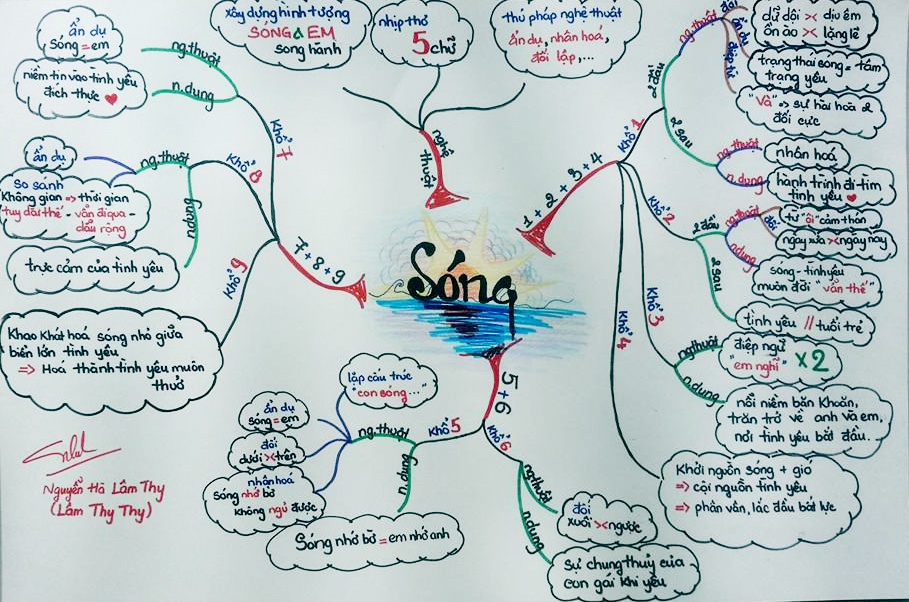 Sóng
nghệ thuật
xây dựng hình tượng
SÓNG & EM
song hành
nhịp thơ
5 chữ
thủ pháp nghệ thuật
ẩn dụ, nhân hoá,
đối lập,...
1 + 2 + 3 + 4
Khổ 1
2 đầu
ng.thuật
đối
dữ dội >< dịu êm
ồn ào >< lặng lẽ
ẩn dụ
trạng thái sóng = tâm
trạng yêu
điệp từ
"Và" => sự hài hoà 2
đối cực
2 sau
ng.thuật
nhân hoá
n.dung
hành trình đi tìm
tình yêu
Khổ 2
2 đầu
ng.thuật
từ "ôi" cảm thán
đối
ngày xưa >< ngày nay
n.dung
sóng - tình yêu
muôn đời "vẫn thế"
2 sau
tình yêu // tuổi trẻ
Khổ 3
ng.thuật
điệp ngữ
"em nghĩ" x2
n.dung
nỗi niềm băn khoăn,
trăn trở về anh và em,
nơi tình yêu bắt đầu.
Khổ 4
Khởi nguồn sóng + gió
=> cội nguồn tình yêu
=> phân vân, lắc đầu bất lực
5 + 6
Khổ 5
ng.thuật
lặp cấu trúc
"con sóng..."
ẩn dụ
sóng = em
đối
dưới >< trên
nhân hoá
sóng nhớ bờ
không ngủ được
n.dung
Sóng nhớ bờ = em nhớ anh
Khổ 6
ng.thuật
đối
xuôi >< ngược
n.dung
sự chung thuỷ của
con gái khi yêu
7 + 8 + 9
Khổ 7
ng.thuật
ẩn dụ
sóng = em
n.dung
niềm tin vào tình yêu
đích thực
Khổ 8
ng.thuật
ẩn dụ
so sánh
không gian => thời gian
tuy dài thế - vẫn đi qua -
dẫu rộng
n.dung
trực cảm của tình yêu
Khổ 9
Khao khát hoá sóng nhỏ giữa
biển lớn tình yêu
=> Hoá thành tình yêu muôn
thuở
Nguyễn Hà Lâm Thy
(Lâm Thy Thy)